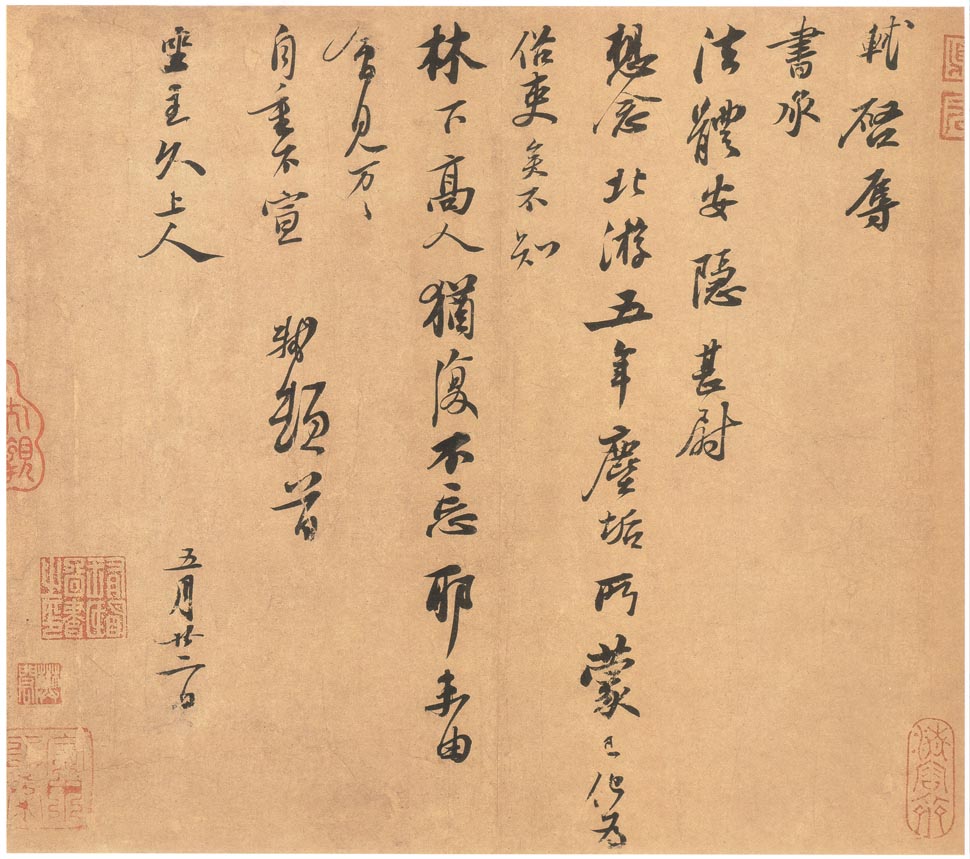 軾啓辱
書承
法體安隱甚尉
想念北游五年塵垢所蒙已化爲
俗吏矣不知
林下高人猶復不忘耶未由
會見万〻
自重不宣 軾頓首
坐主久上人 五月廿二日